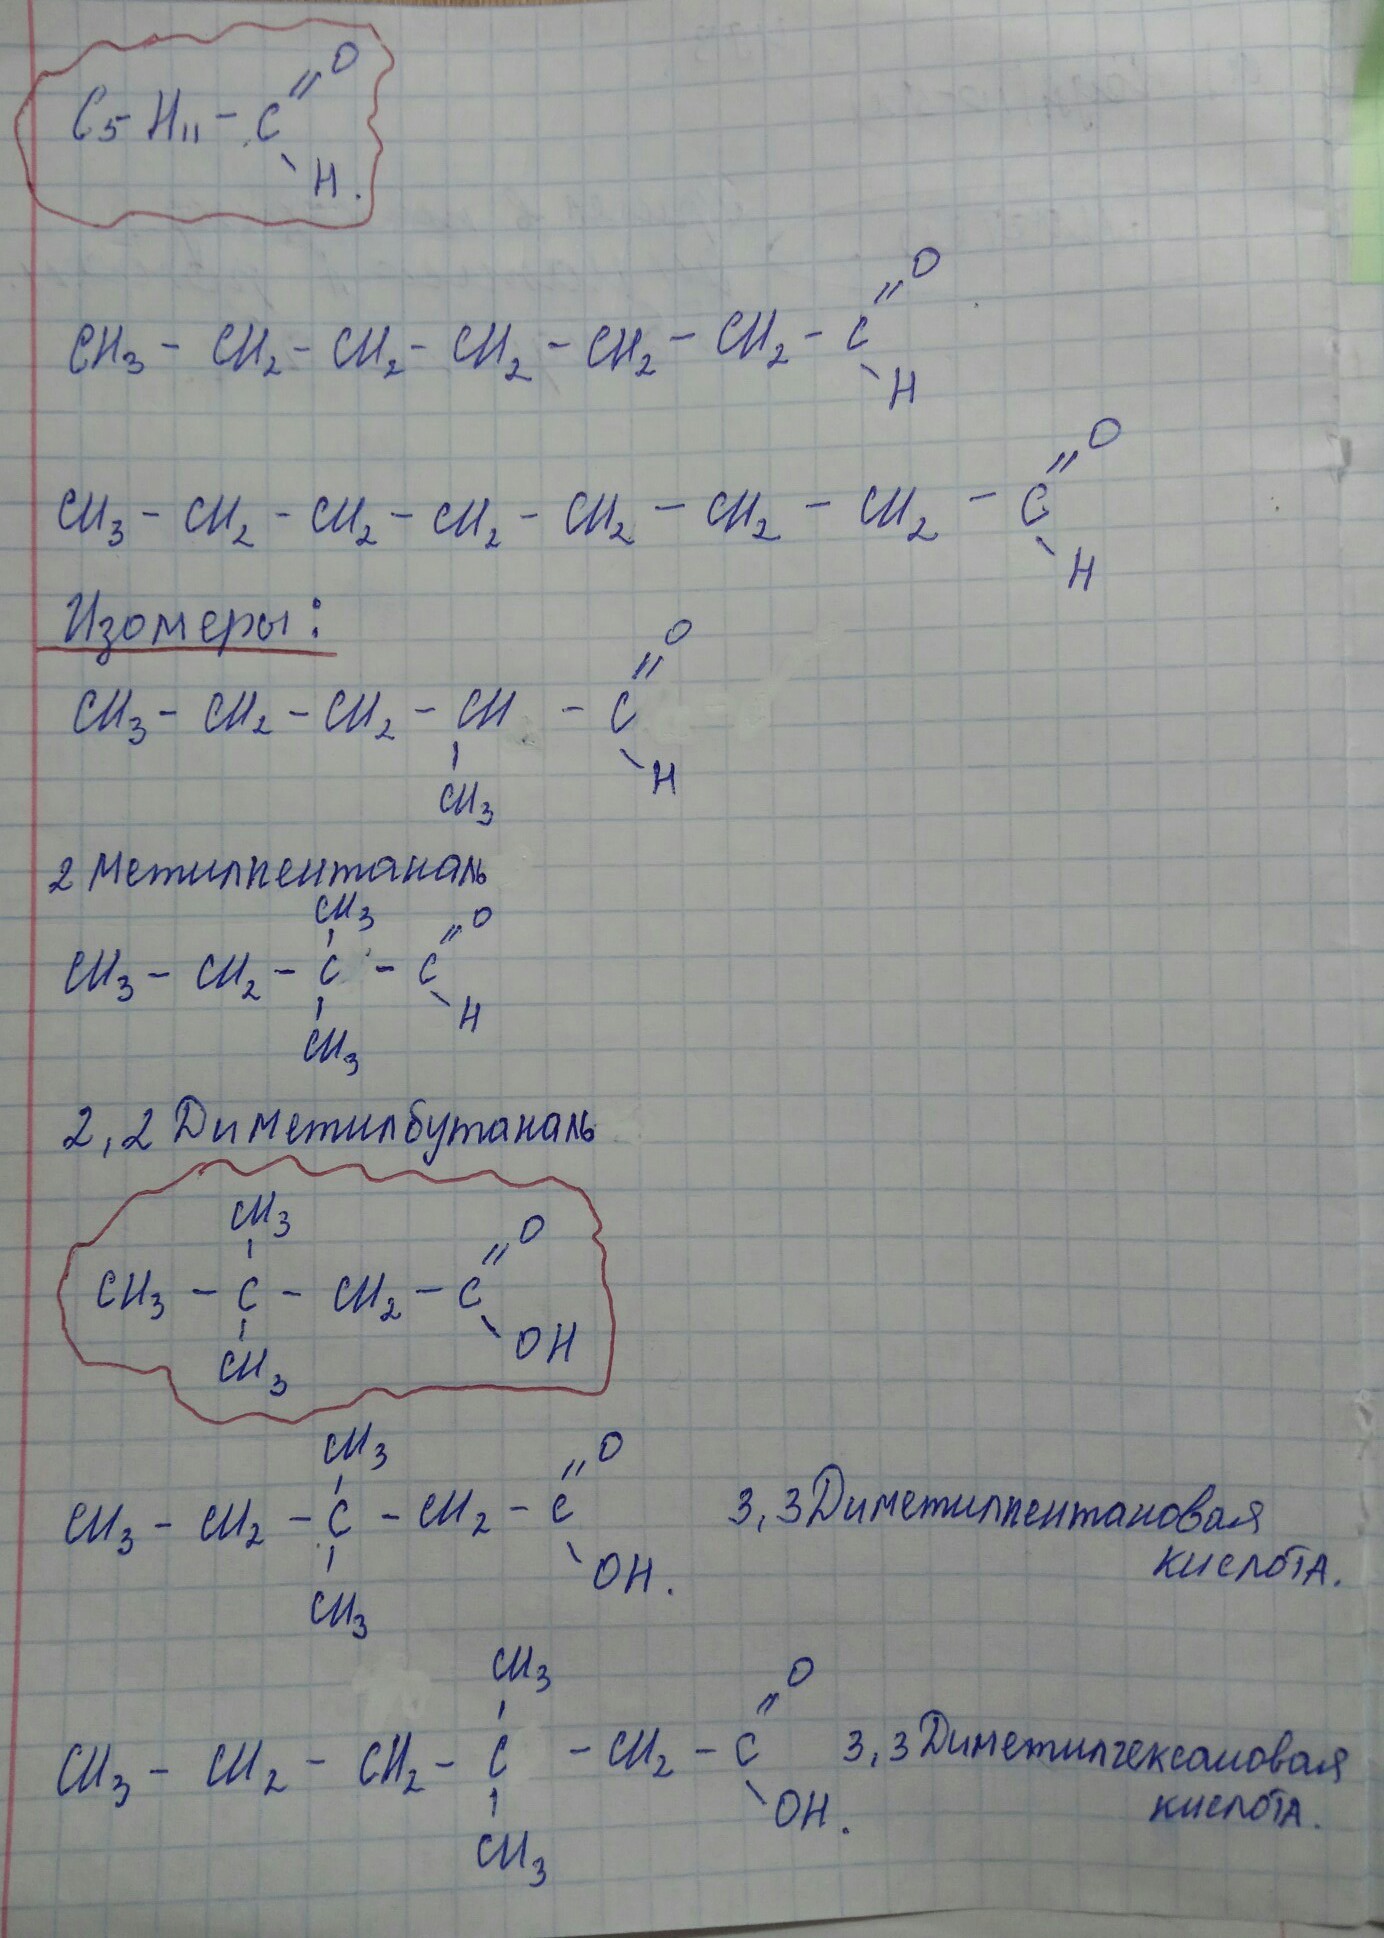 C5-H11 - C
=O
H.
CH3 - CH2 - CH2 - CH2 - CH2 - CH2 - C
=O
H
CH3 - CH2 - CH2 - CH2 - CH2 - CH2 - CH2 - C
=O
H
Изомеры:
CH3 - CH2 - CH2 - CH - C
=O
H
CH3
2 Метилпентаналь
CH3
CH3 - CH2 - C - C
=O
H
CH3
2,2 Диметилбутаналь
CH3
CH3 - C - CH2 - C
=O
OH
CH3
CH3
CH3 - CH2 - C - CH2 - C
=O
OH.
CH3
3,3 Диметилпентановая
кислота.
CH3
CH3 - CH2 - CH2 - C - CH2 - C
=O
OH.
CH3
3,3 Диметилгексановая
кислота.